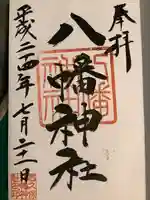 奉拝
八幡神社
平成二四年七月二十一日